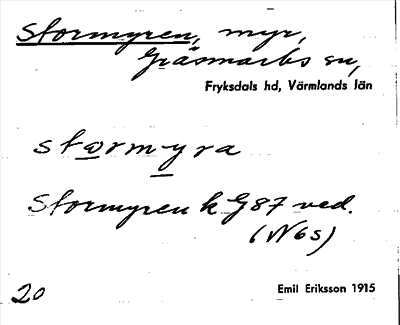 Stormyren, myr,
Gräsmarks sn,
Fryksdals hd, Värmlands län
stormyra
Stormyren k G87 ved.
(N6s)
20
Emil Eriksson 1915